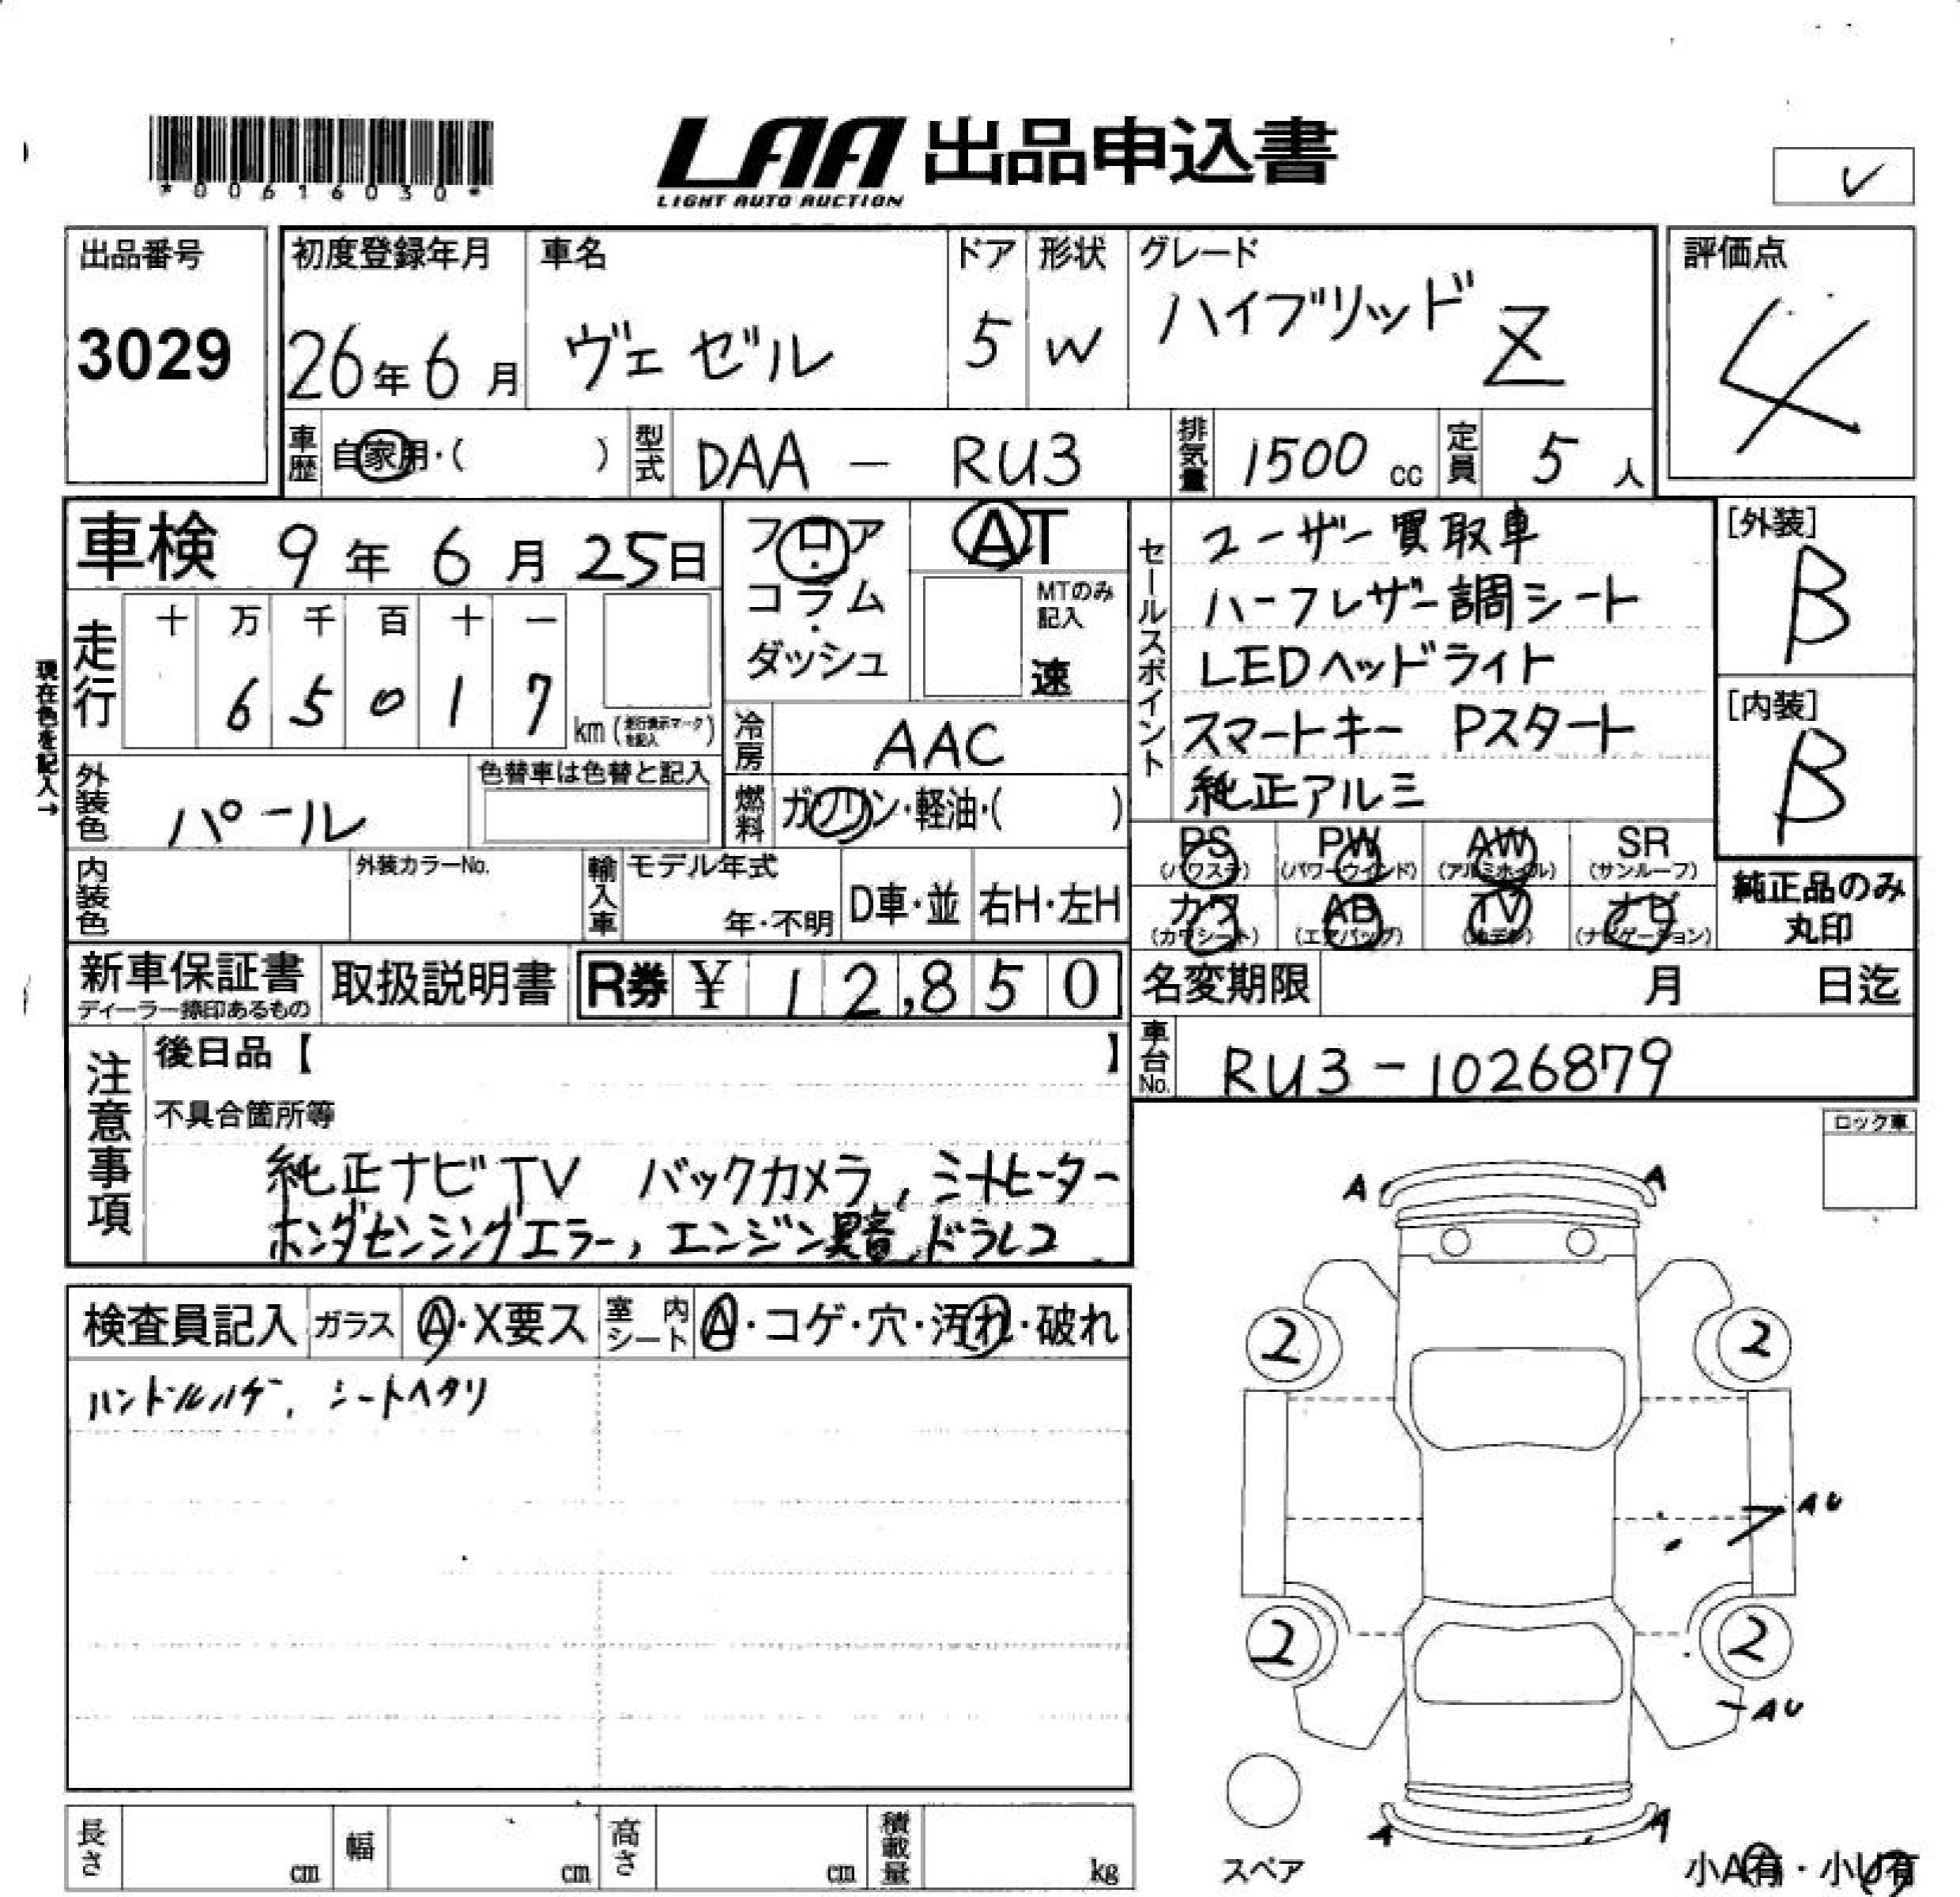 *00616030*
LAA 出品申込書
LIGHT AUTO AUCTION
出品番号
3029
初度登録年月
26年6月
車名
ヴェゼル
ドア
5
形状
W
グレード
ハイブリッド Z
評価点
4
車歴 自家用・( )
型式 DAA - RU3
排気量 1500 cc
定員 5 人
車検 9年6月25日
フロア
コラム
ダッシュ
AT
MTのみ記入
速
セールスポイント
ユーザー買取車
ハーフレザー調シート
LEDヘッドライト
スマートキー Pスタート
純正アルミ
[外装]
B
[内装]
B
現在色を記入→
走行
十 万 千 百 十 一
6 5 0 1 7
km(走行表示マークを記入)
冷房 AAC
外装色 パール
色替車は色替と記入
燃料 ガソリン・軽油・( )
内装色
外装カラーNo.
輸入車
モデル年式
年・不明
D車・並
右H・左H
PS (パワステ)
PW (パワーウインド)
AW (アルミホイル)
SR (サンルーフ)
カワ (カワシート)
AB (エアバッグ)
TV
ナビ (ナビゲーション)
純正品のみ丸印
新車保証書
ディーラー捺印あるもの
取扱説明書
R券 ¥ 12,850
名変期限 月 日迄
車台No. RU3-1026879
注意事項
後日品【 】
不具合箇所等
純正ナビTV バックカメラ, シートヒーター
ホンダセンシングエラー, エンジン異音, ドラレコ
ロック車
検査員記入
ガラス A・X要ス
室内シート A・コゲ・穴・汚れ・破れ
ハンドルハゲ, シートヘタリ
A A
2 2
AU
2 2
AU
A A
スペア
小A有・小U有
長さ cm
幅 cm
高さ cm
積載量 kg